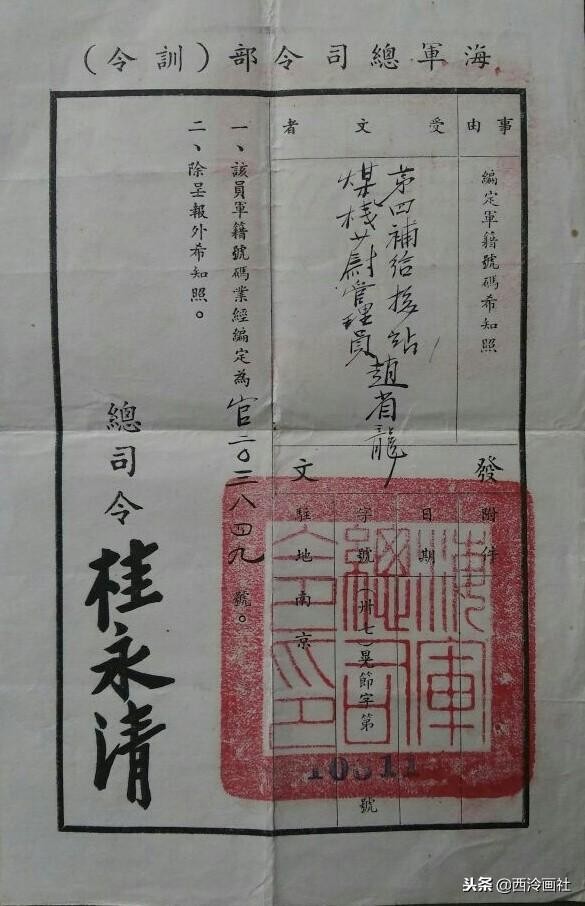 海軍總司令部（訓令）
事由
編定軍籍號碼希知照
受文者
第四補給接站
煤棧少尉管理員趙省龍
發文
附件
日期
字號
（卅七）晃節字第
10311
號
駐地
南京
一、該員軍籍號碼業經編定為官二〇三八四九號。
二、除呈報外希知照。
總司令桂永清
海軍
總司
令印
头条@西泠画社